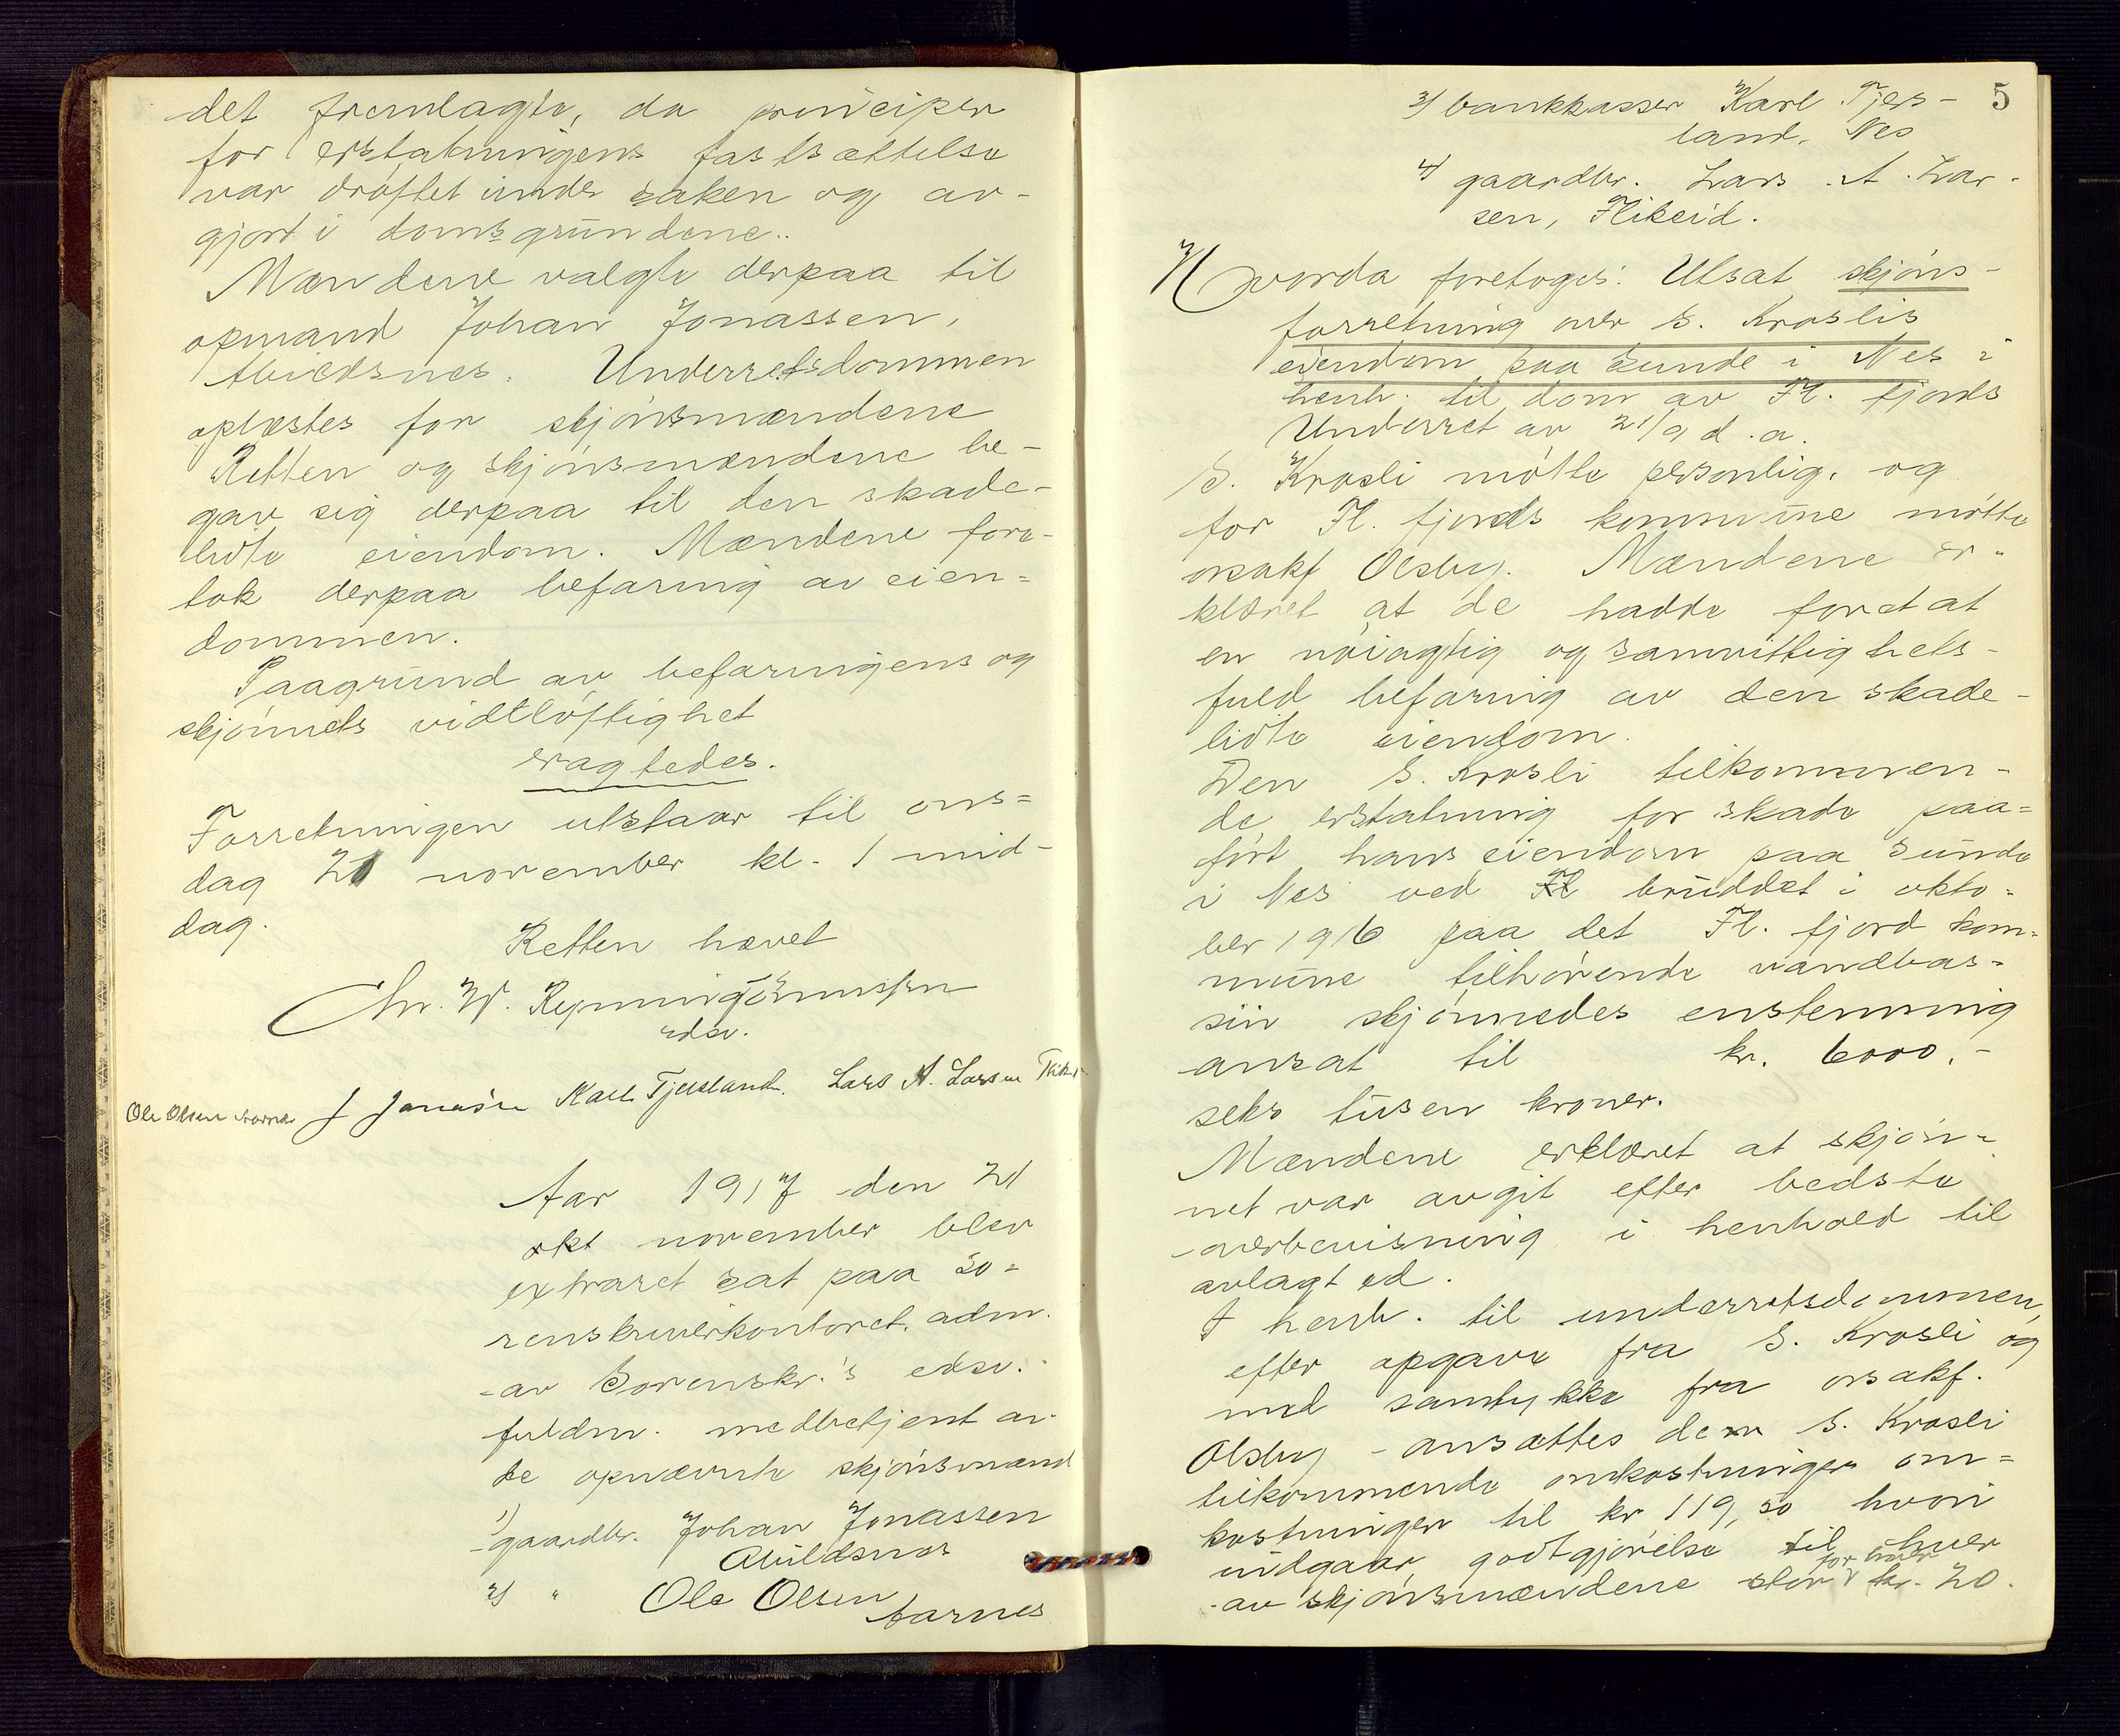 det fremlagte, da principer
for erstatningens fastsættelse
var drøftet under saken og av-
gjort i domsgrundene.
Mændene valgte derpaa til
opmand Johan Jonassen,
Abildsnes. Underretsdommen
oplæstes for skjønsmændene
Retten og skjønsmændene be-
gav sig derpaa til den skade-
lidte eiendom. Mændene fore-
tok derpaa befaring av eien-
dommen.
Paagrund av befaringens og
skjønnets vidtløftighet
eragtedes.
Forretningen utstaar til ons-
dag 21 november kl. 1 mid-
dag.
Retten hævet
Chr. W.
edsv.
Ole Olsen Aarnes J Jonassen Karl Tjersland. Lars A. Larsen
Aar 1917 den 21
okt november blev
extraret sat paa so-
renskriverkontoret, adm.
av Sorenskr.'s edsv.
fuldm. medbetjent av
de opnævnte skjønsmænd
1) gaardbr. Johan Jonassen
Abildsnes
2) " Ole Olsen
Aarnes
5
3) bankkasser Karl Tjers-
land, Nes
4) gaardbr. Lars A. Lar-
sen, Flikeid.
Hvorda foretoges: Utsat skjøns-
forretning over S. Kroslis
eiendom paa Sunde i Nes i
henh. til dom av Fl. fjords
Underret av 21/9 d.a.
S. Krosli møtte personlig, og
for Fl. fjords kommune møtte
orsakf Olsby. Mændene er-
klæret at de hadde foretat
en nøiagtig og samvittighets-
fuld befaring av den skade-
lidte eiendom.
Den S. Krosli tilkommen-
de erstatning for skade paa-
ført hans eiendom paa Sunde
i Nes ved Fl bruddet i okto-
ber 1916 paa det Fl. fjord kom-
mune tilhørende vandbas-
sin skjønnedes enstemmig
ansat til kr. 6000.-
seks tusen kroner.
Mændene erklæret at skjøn-
net var avgit efter bedste
overbevisning i henhold til
avlagt ed.
I henh. til underretsdommen,
efter opgave fra S. Krosli og
med samtykke fra orsakf.
Olsby ansættes dem S. Krosli
tilkommende omkostninger om-
kostninger til kr 119,50 hvori
indgaar godtgjørelse til hver
for hver
av skjønsmændene stor kr. 20.